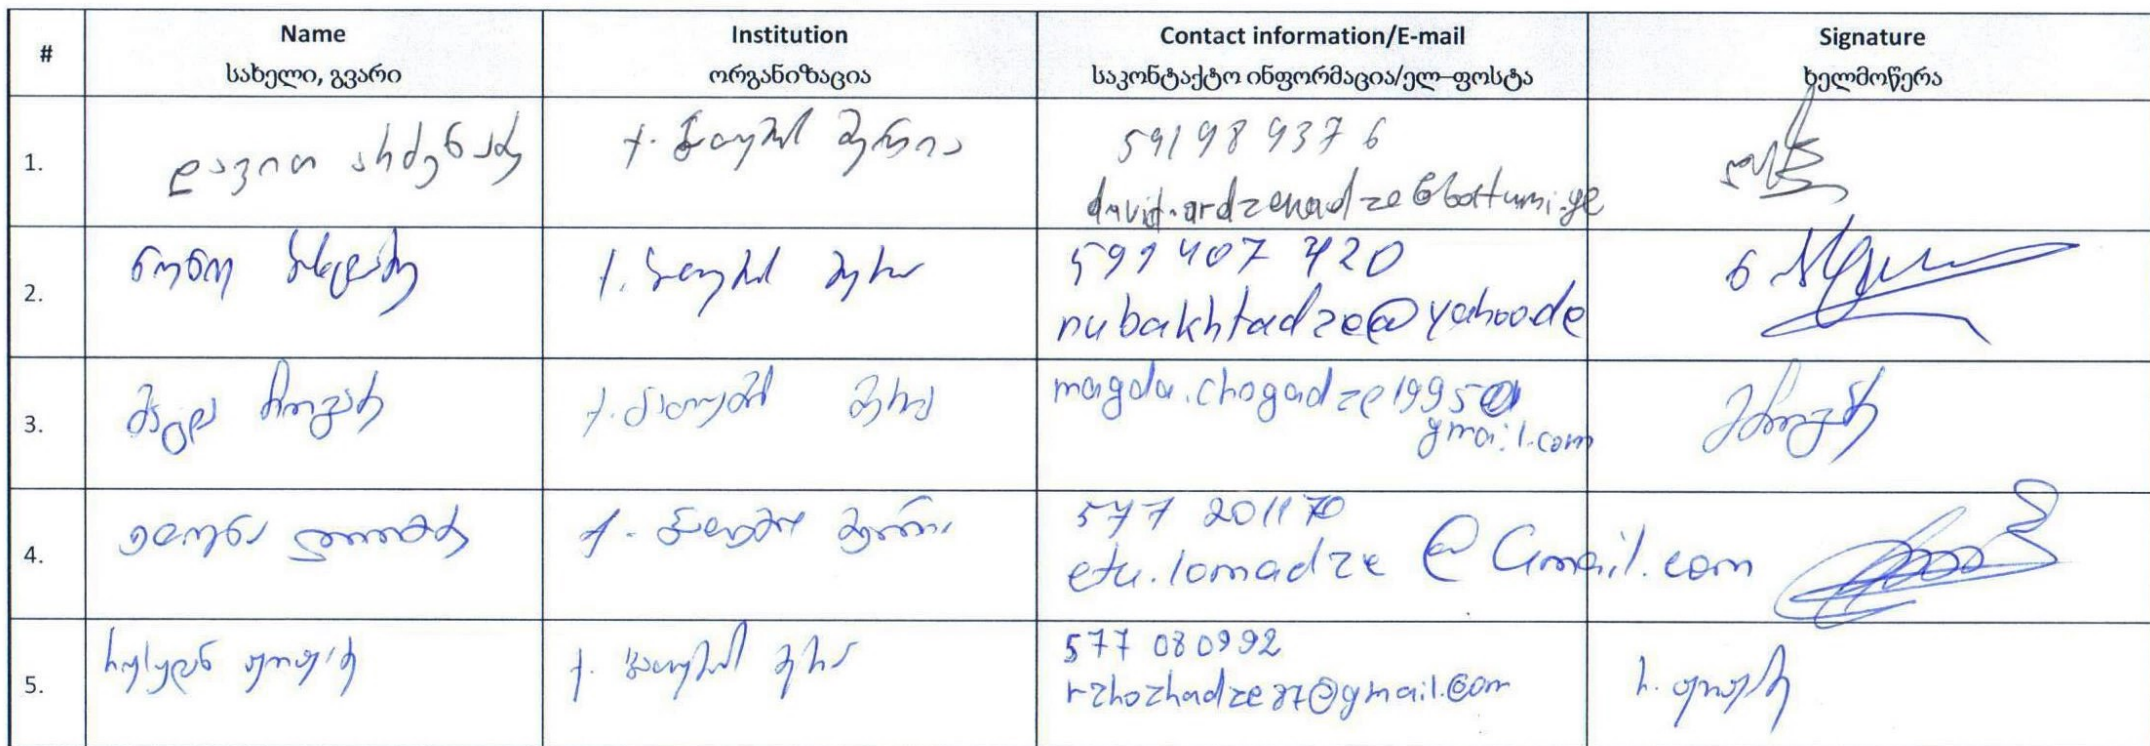 # Name Institution Contact information/E-mail Signature
სახელი, გვარი ორგანიზაცია საკონტაქტო ინფორმაცია/ელ–ფოსტა ხელმოწერა
1. დავით არძენაძე ქ. ბათუმის მერია 591989376
david.ardzenadze@batumi.ge
2. ნუნუ ბახტაძე ქ. ბათუმის მერია 591 407 420
nubakhtadze@yahoo.de
3. მაგდა ჩოგაძე ქ. ბათუმის მერია magda.chogadze1995@
gmail.com
4. ლომაძე ქ. ბათუმის მერია 577 201170
etu.lomadze@Gmail.com
5. რუსუდან ჟოჟაძე ქ. ბათუმის მერია 577 080992
rzhozhadze87@gmail.com რ. ჟოჟაძე